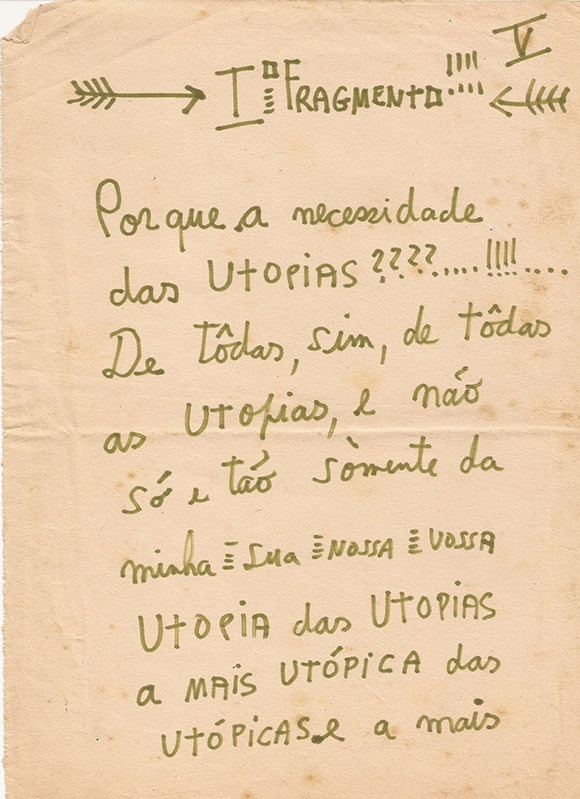 V
Iº FRAGMENTO !!!!
Porque a necessidade
das UTOPIAS ????....!!!!....
De tôdas, sim, de tôdas
as UTOPIAS, e não
só e tão sòmente da
minha = Sua = NOSSA = VOSSA
UTOPIA das UTOPIAS
a MAIS UTÓPICA das
UTÓPICAS e a mais